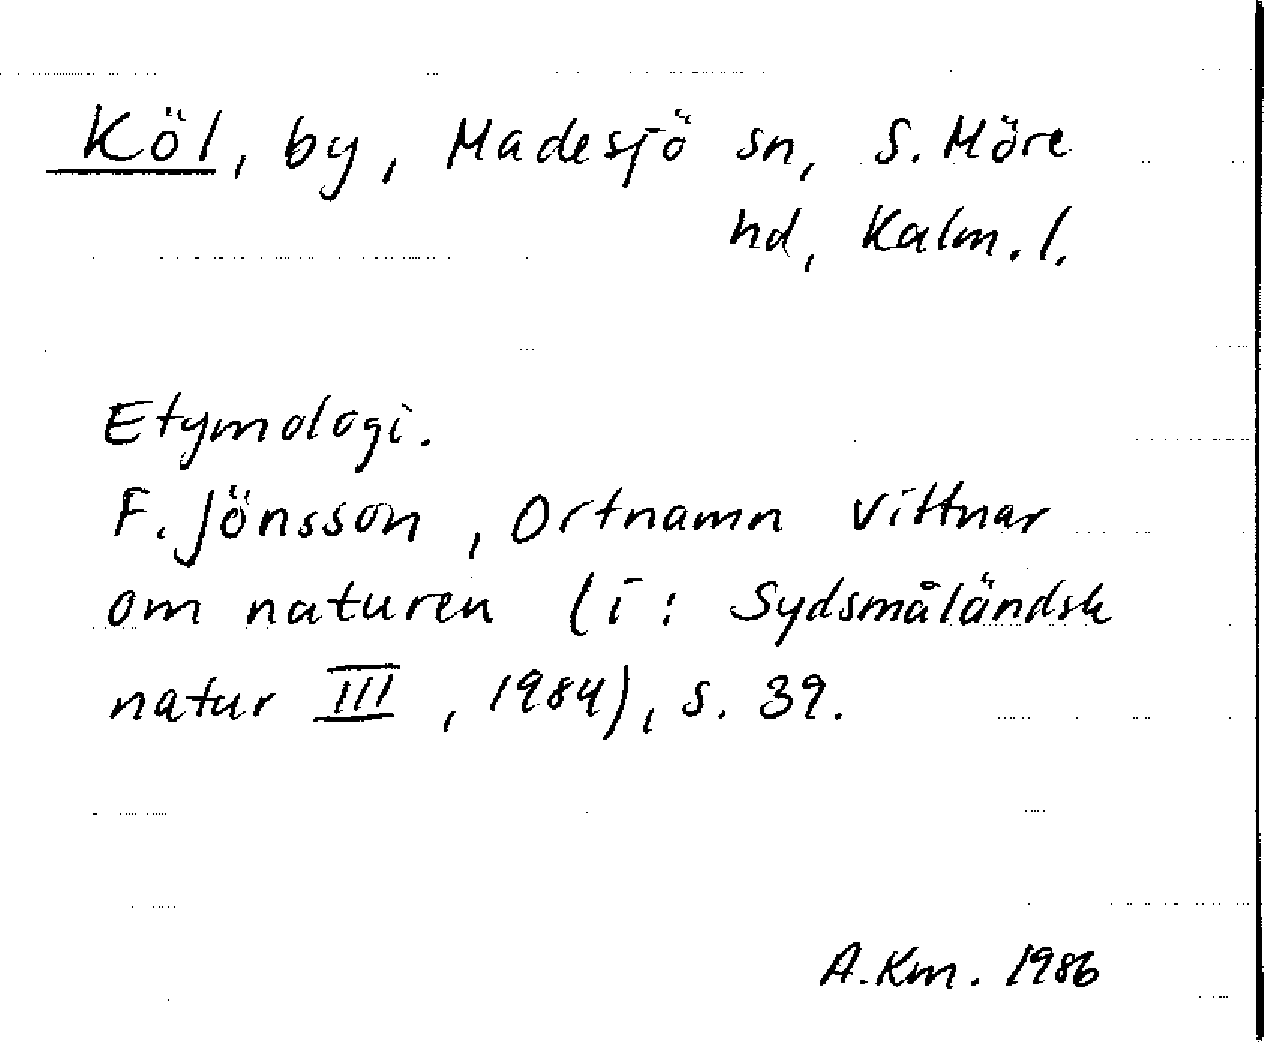 Köl, by, Madesjö sn, S. Möre
hd, Kalm. l.
Etymologi.
F. Jönsson, Ortnamn vittnar
om naturen (i: Sydsmåländsk
natur III, 1984), s. 39.
A.Km. 1986